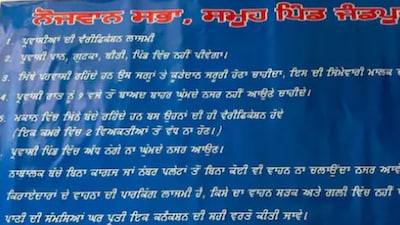 ਨੌਜਵਾਨ ਸਭਾ, ਸਮੂਹ ਪਿੰਡ ਜੰਡਪੁਰ
1. ਪ੍ਰਵਾਸੀਆਂ ਦੀ ਵੈਰੀਫਿਕੇਸ਼ਨ ਲਾਜ਼ਮੀ
2. ਪ੍ਰਵਾਸੀ ਪਾਨ, ਗੁਟਕਾ, ਬੀੜੀ, ਪਿੰਡ ਵਿੱਚ ਨਹੀਂ ਪੀਵੇਗਾ।
3. ਜਿੱਥੇ ਪਰਵਾਸੀ ਰਹਿੰਦੇ ਹਨ ਉਸ ਜਗ੍ਹਾ ਤੇ ਕੂੜੇਦਾਨ ਜਰੂਰੀ ਹੋਣਾ ਚਾਹੀਦਾ, ਇਸ ਦੀ ਜਿੰਮੇਵਾਰੀ ਮਾਲਕ ਦੀ
4. ਪ੍ਰਵਾਸੀ ਰਾਤ ਨੂੰ 9 ਵਜੇ ਤੋਂ ਬਾਅਦ ਬਾਹਰ ਘੁੰਮਦੇ ਨਜਰ ਨਹੀਂ ਆਉਣੇ ਚਾਹੀਦੇ।
5. ਮਕਾਨ ਵਿੱਚ ਜਿੰਨੇ ਬੰਦੇ ਰਹਿੰਦੇ ਹਨ ਬਸ ਉਹਨਾਂ ਦੀ ਹੀ ਵੈਰੀਫਿਕੇਸ਼ਨ ਹੋਵੇ
(ਇਕ ਕਮਰੇ ਵਿੱਚ 2 ਵਿਅਕਤੀਆਂ ਤੋਂ ਵੱਧ ਨਾ ਹੋਣ।)
ਪ੍ਰਵਾਸੀ ਪਿੰਡ ਵਿੱਚ ਅੱਧ ਨੰਗੇ ਨਾ ਘੁੰਮਦੇ ਨਜਰ ਆਉਣ।
ਨਾਬਾਲਕ ਬੱਚੇ ਬਿਨਾ ਕਾਗਜ਼ ਜਾਂ ਨੰਬਰ ਪਲੇਟਾਂ ਤੋਂ ਬਿਨਾ ਕੋਈ ਵੀ ਵਾਹਨ ਨਾ ਚਲਾਉਂਦਾ ਨਜਰ ਆਵੇ
ਕਿਰਾਏਦਾਰਾਂ ਦੇ ਵਾਹਨਾ ਦੀ ਪਾਰਕਿੰਗ ਲਾਜਮੀ ਹੈ, ਕਿਸੇ ਦਾ ਵਾਹਨ ਸੜਕ ਅਤੇ ਗਲੀ ਵਿੱਚ ਨਹੀਂ
ਪਾਣੀ ਦੀ ਸਮੱਸਿਆ ਘਰ ਪ੍ਰਤੀ ਇਕ ਕਨੈਕਸ਼ਨ ਦੀ ਸਹੀ ਵਰਤੋ ਕੀਤੀ ਜਾਵੇ।